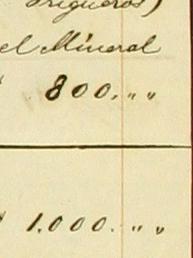 Trigueros)
el Mineral
800. „ „
1.000. „ „